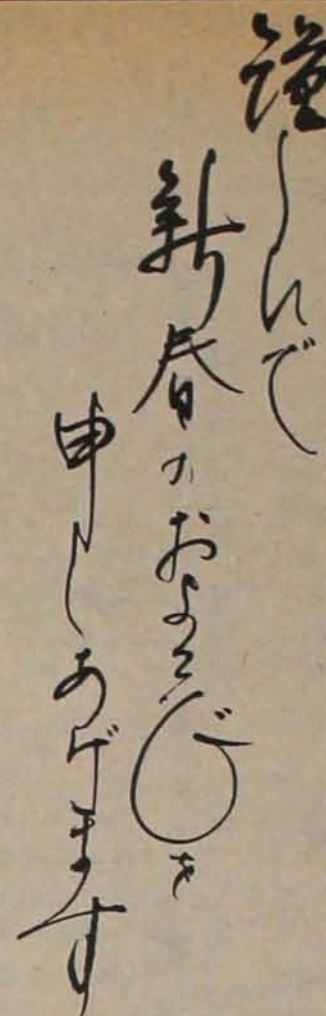 謹しんで
新春のおよろこびを
申しあげます